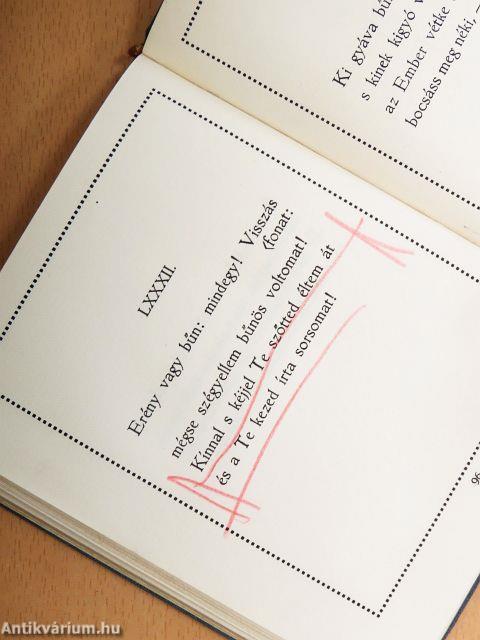 Ki gyáva bű
s kinek kigyó v
az Ember vétke
bocsáss meg néki, —
LXXXII.
Erény vagy bűn: mindegy! Visszás
(fonat:
mégse szégyellem bűnös voltomat!
Kínnal s kéjjel Te szőtted éltem át
és a Te kezed írta sorsomat!
96
Antikvárium.hu